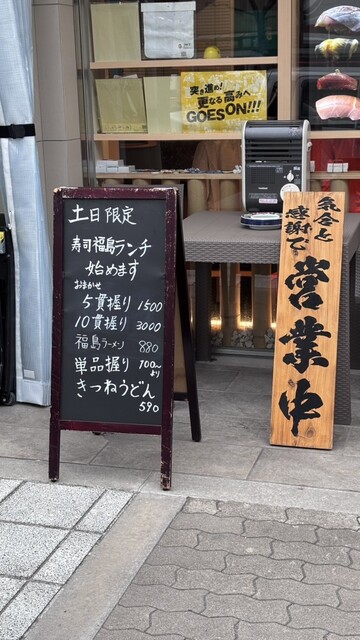 突き進め!
更なる高みへ
GOES ON!!!
土日限定
寿司福島ランチ
始めます
おまかせ
5貫握り 1500
10貫握り 3000
福島ラーメン 880
単品握り 100〜より
きつねうどん
590
気合と
感謝で
営業中